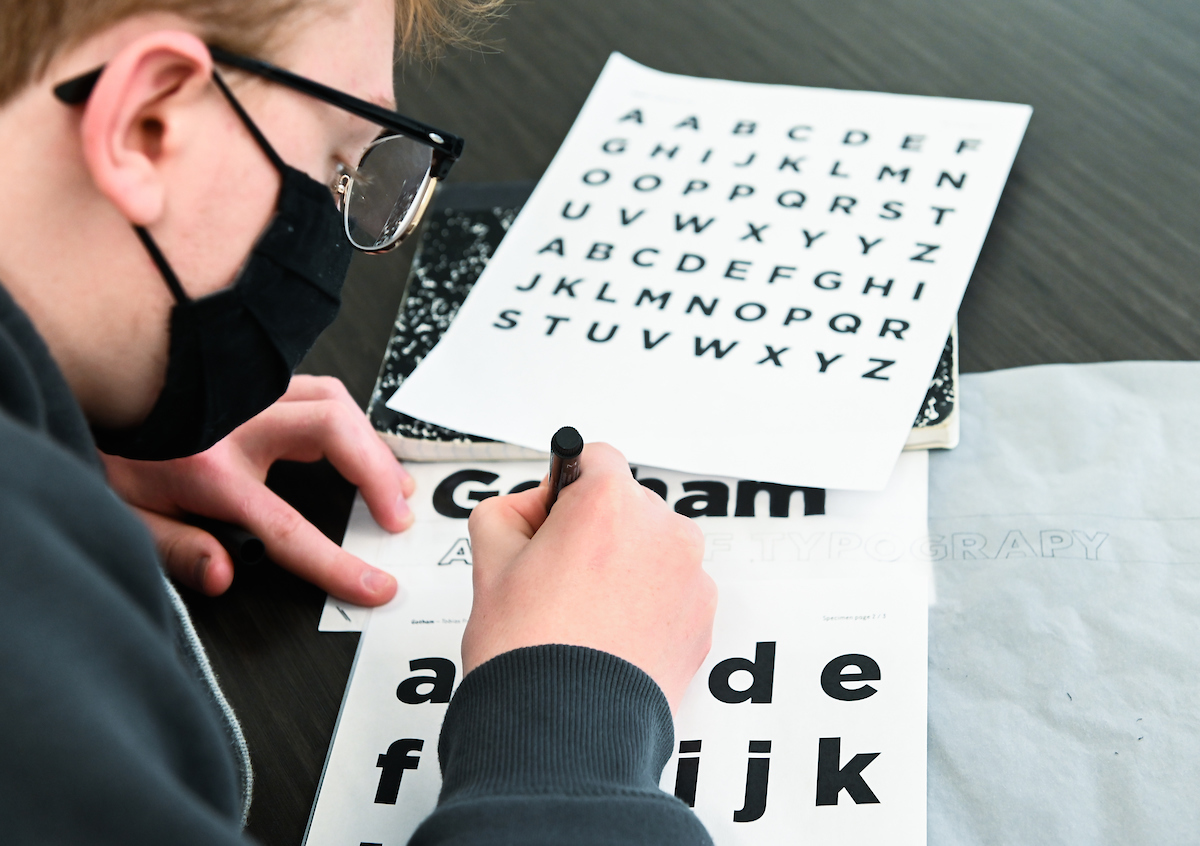 A A B C D E F
G H I J K L M N
O O P P Q R S T
U V W X Y Y Z
A B C D E F G H I
J K L M N O P Q R
S T U V W X Y Z
Gotham
A F TYPOGRAPY
Gotham – Tobias Specimen page 2 / 3
a d e
f i j k